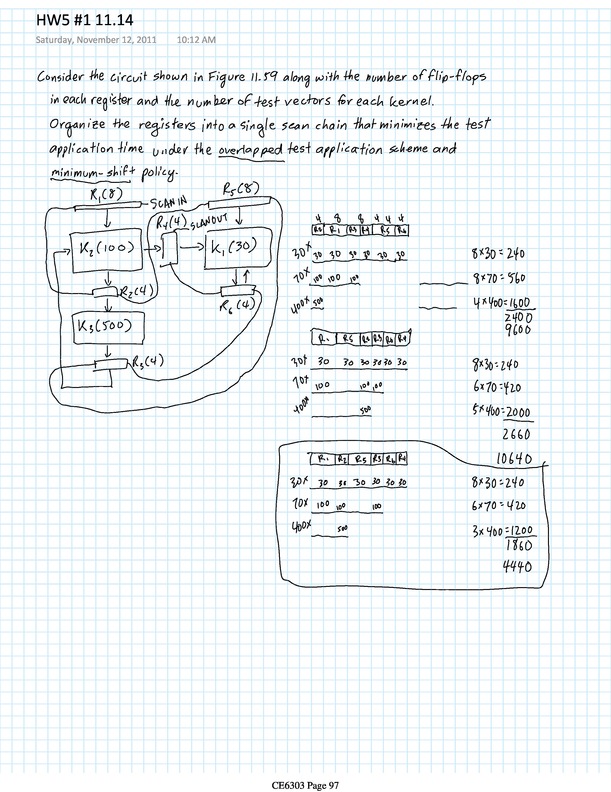 HW5 #1 11.14
Saturday, November 12, 2011 10:12 AM
Consider the circuit shown in Figure 11.59 along with the number of flip-flops
in each register and the number of test vectors for each kernel.
Organize the registers into a single scan chain that minimizes the test
application time under the overlapped test application scheme and
minimum-shift policy.
R1(8) SCANIN R5(8)
R4(4) SCANOUT
K2(100) K1(30)
R2(4) R6(4)
K3(500)
R3(4)
4 8 8 4 4 4
30x 30 30 30 30 30 30 8x30=240
70x 100 100 100 8x70=560
400x 500 4x400=1600
2400
9600
30x 30 30 30 30 30 30 8x30=240
70x 100 100 100 6x70=420
400x 500 5x400=2000
2660
10640
R1 R2 R5 R3 R6 R4
30x 30 30 30 30 30 30 8x30=240
70x 100 100 100 6x70=420
400x 500 3x400=1200
1860
4440
CE6303 Page 97